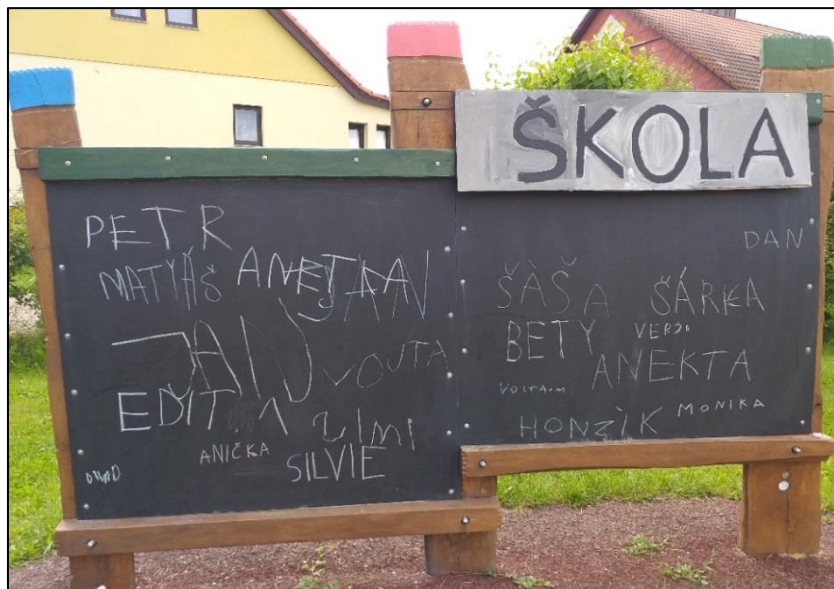 ŠKOLA
PETR
MATYÁŠ ANEJKA JAN
JAN VOJTA
EDIT A JIMI
ANIČKA
SILVIE
DAVID
DAN
ŠÁŠA ŠÁRKA
BETY
ANEKTA
HONZÍK MONIKA